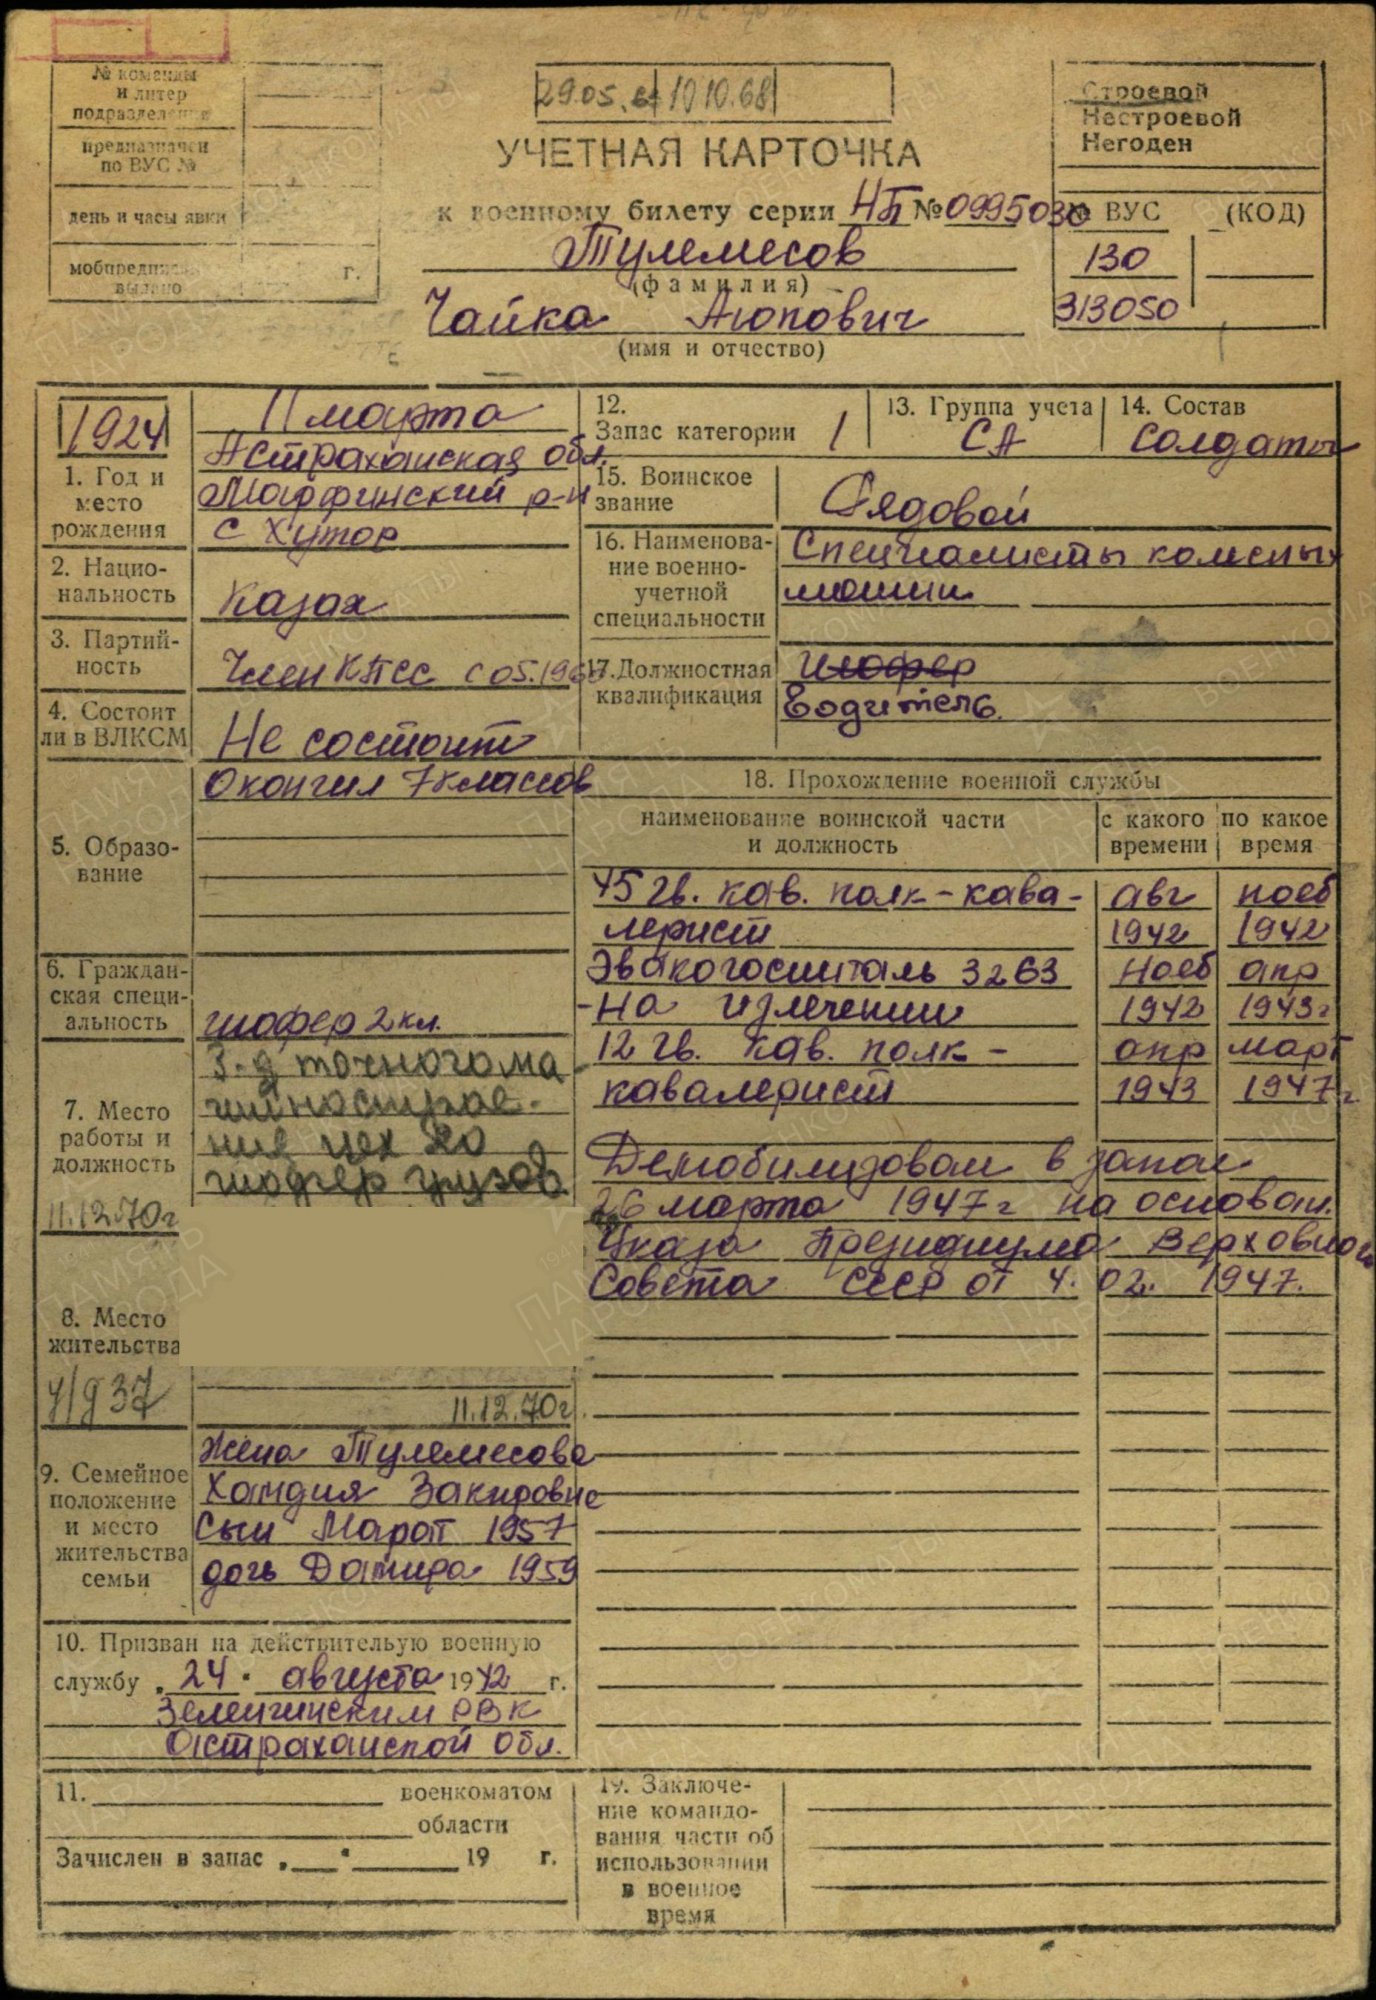 № команды
и литер
подразделения
предназначен
по ВУС №
день и часы явки
мобпредписание
выдано г.
29.05. 10 10.68
УЧЕТНАЯ КАРТОЧКА
к военному билету серии НБ № 0995030
Тулемесов
(фамилия)
Чайка Аюпович
(имя и отчество)
Строевой
Нестроевой
Негоден
№ ВУС (КОД)
130
313050
1924
1. Год и
место
рождения
11 марта
Астраханская обл.
Марфинский р-н
с Хутор
2. Нацио-
нальность
Казах
3. Партий-
ность
Член КПСС с 05.196
4. Состоит
ли в ВЛКСМ
Не состоит
5. Образо-
вание
Окончил 7 классов
6. Граждан-
ская специ-
альность
шофер 2 кл.
7. Место
работы и
должность
11.12.70г
З-д точного ма-
шинострое-
ния цех 20
шофер грузов
8. Место
жительства
11.12.70г.
9. Семейное
положение
и место
жительства
семьи
Жена Тулемесова
Хамдия Закировна
Сын Марат 1957
дочь Дамира 1959
10. Призван на действительную военную
службу „24" августа 1942 г.
Зеленгинским РВК
Астраханской обл.
11. военкоматом
области
Зачислен в запас „ " 19 г.
12.
Запас категории 1
13. Группа учета
СА
14. Состав
Солдаты
15. Воинское
звание
Рядовой
16. Наименова-
ние военно-
учетной
специальности
Специалисты колесных
машин
17. Должностная
квалификация
шофер
Водитель.
18. Прохождение военной службы
наименование воинской части
и должность
с какого
времени
по какое
время
45 гв. кав. полк - кава- авг нояб
лерист 1942 1942
Эвакогоспиталь 3263 нояб апр
- на излечении 1942 1943г
12 гв. кав. полк - апр март
кавалерист 1943 1947г
Демобилизован в запас
26 марта 1947г на основан.
Указа Президиума Верховного
Совета СССР от 4. 02. 1947.
19. Заключе-
ние командо-
вания части об
использовании
в военное
время